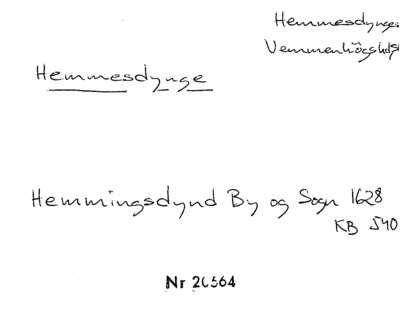 Hemmesdynge
Vemmenhögs hd
Hemmesdynge
Hemmingsdynd By og Sogn 1628
KB 540
Nr 20564